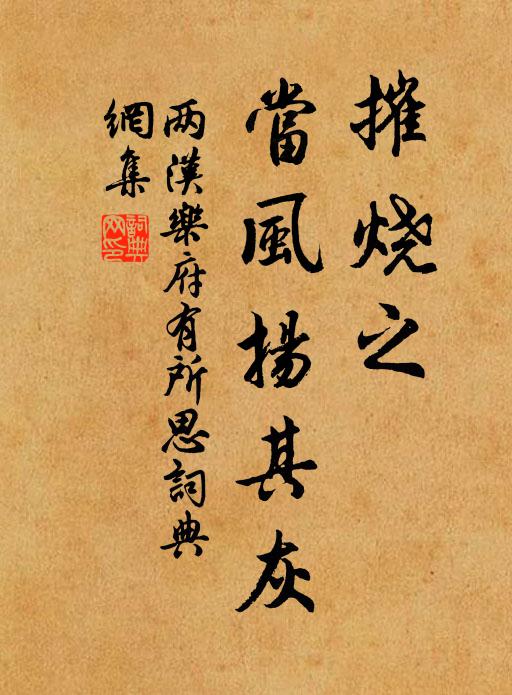 摧烧之
當風揚其灰
两漢樂府有所思詞典
網集
詞典
网印